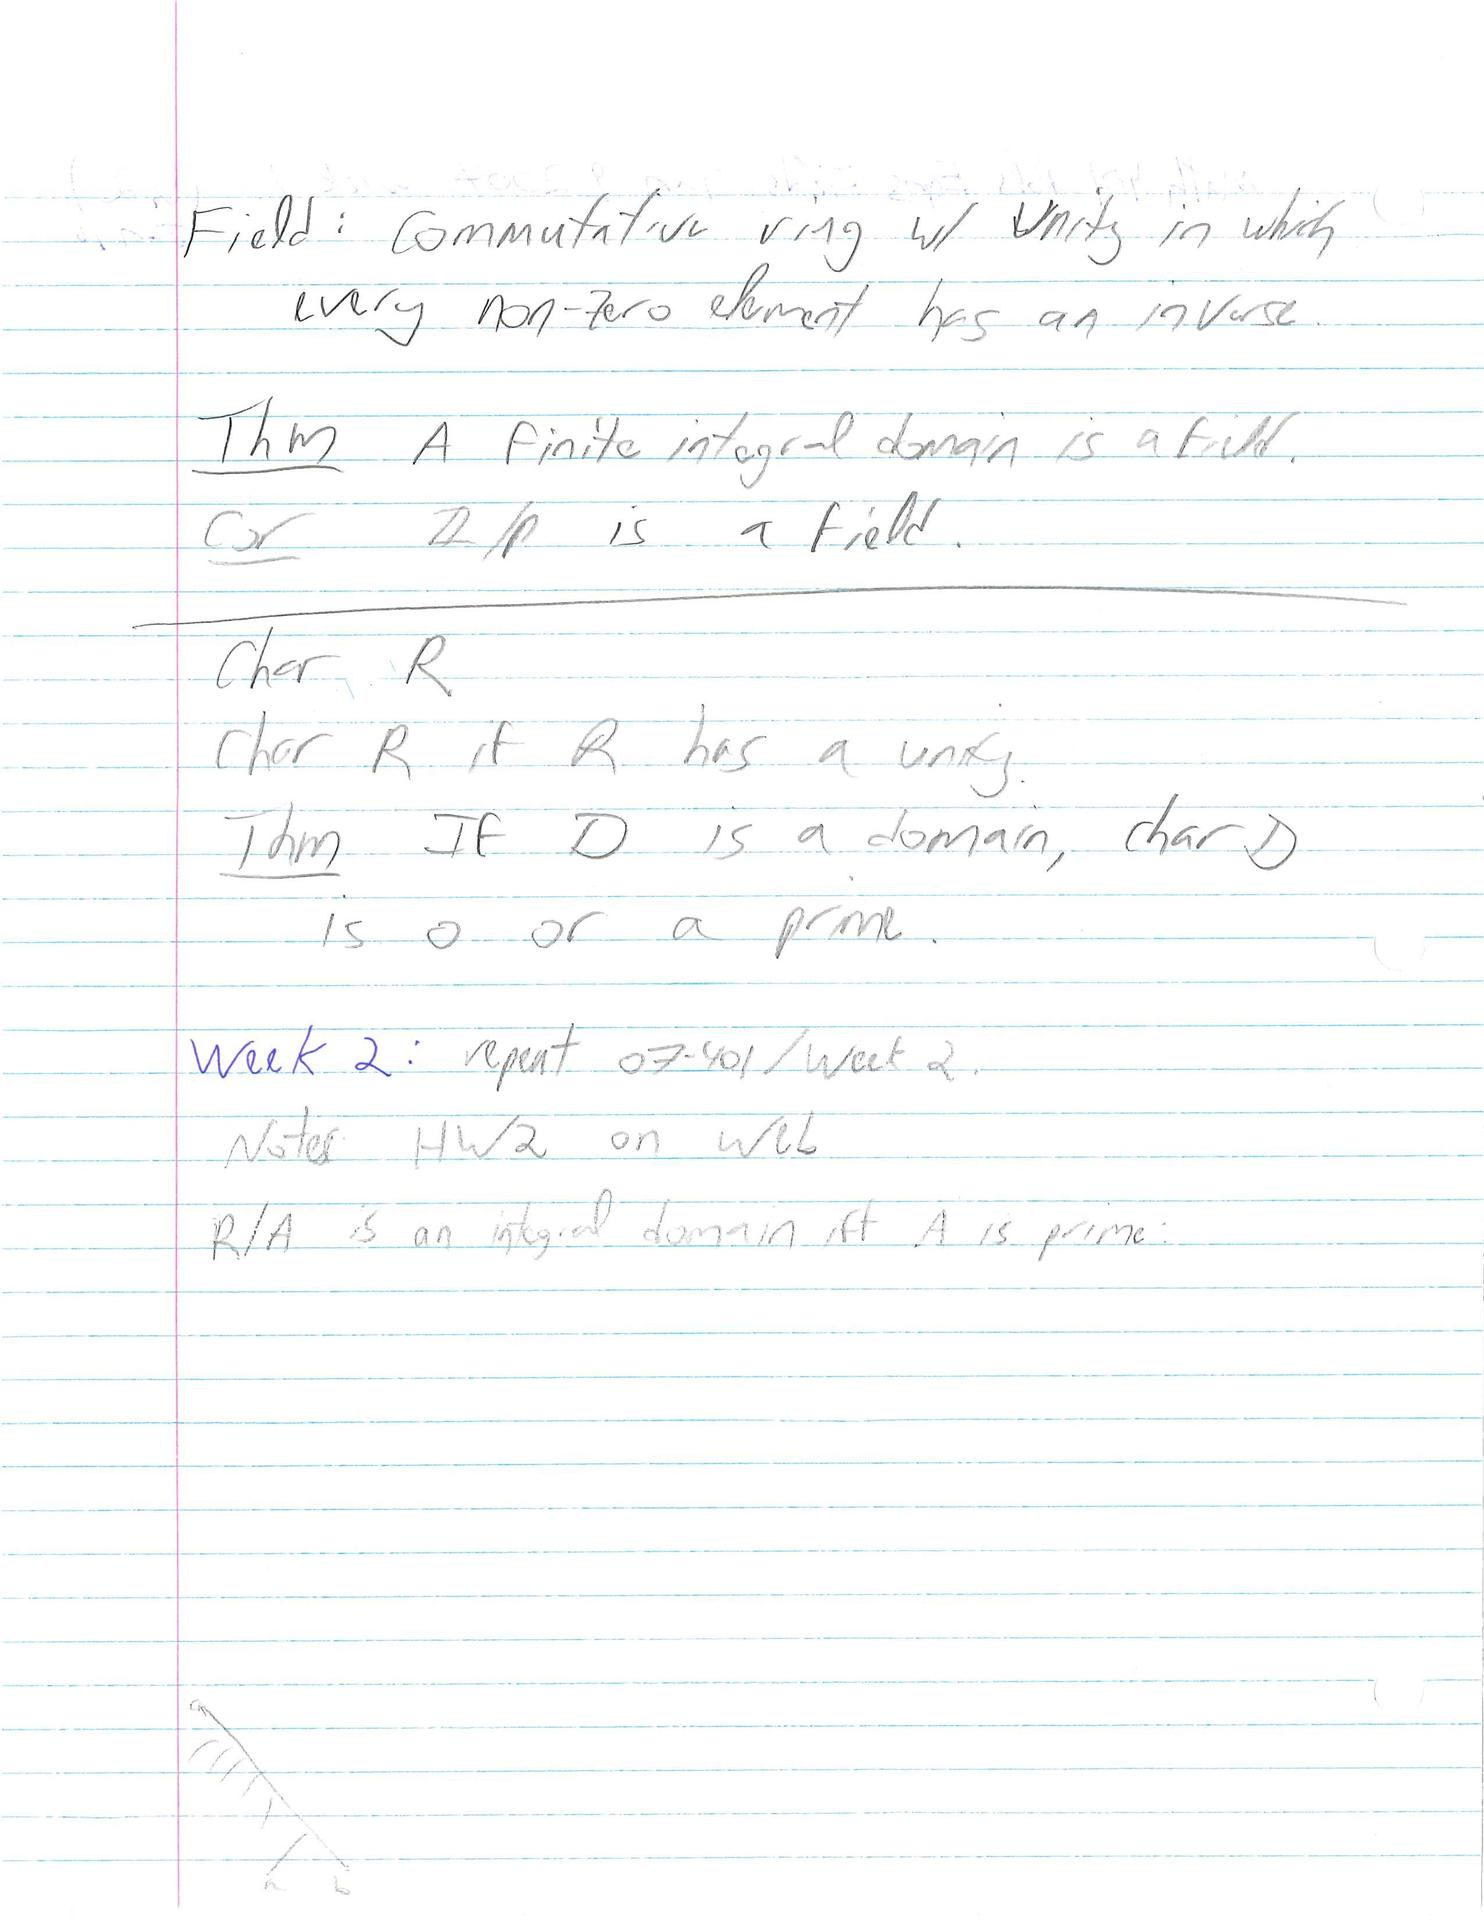 Field: Commutative ring w/ Unity in which
every non-zero element has an inverse.
Thm A finite integral domain is a field.
Cor ℤ/p is a field.
Char R
Char R if R has a unity.
Thm If D is a domain, char D
is 0 or a prime.
Week 2: repeat 07-401/Week 2.
Notes HW2 on web
R/A is an integral domain iff A is prime:
a
a b